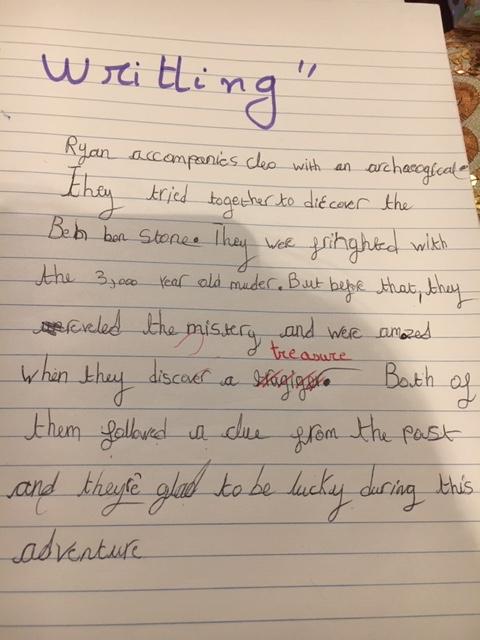 Writling"
Ryan accompanies cleo with an archaeogical
They tried together to discover the
Ben ben stone. They wee frihghted with
the 3,000 year old muder. But befre that, they
reveled the mistery and were amazed
treasure
when they discover a . Both of
them followed a clue from the past
and they're glad to be lucky during this
adventure